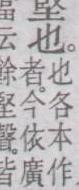 堅也。
也各本作
者。今依廣
云餘堅聲。皆